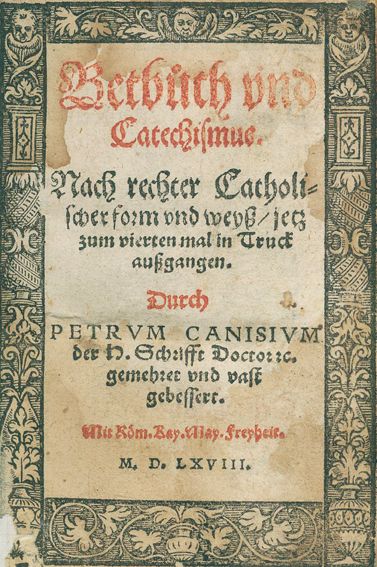 Betbůch vnd
Catechismus.
Nach rechter Catholi-
scher form vnd weyß/ jetz
zum vierten mal in Truck
außgangen.
Durch
PETRVM CANISIVM
der H. Schrifft Doctor ꝛc.
gemehret vnd vast
gebessert.
Mit Röm. Kay. May. freyheit.
M. D. LXVIII.